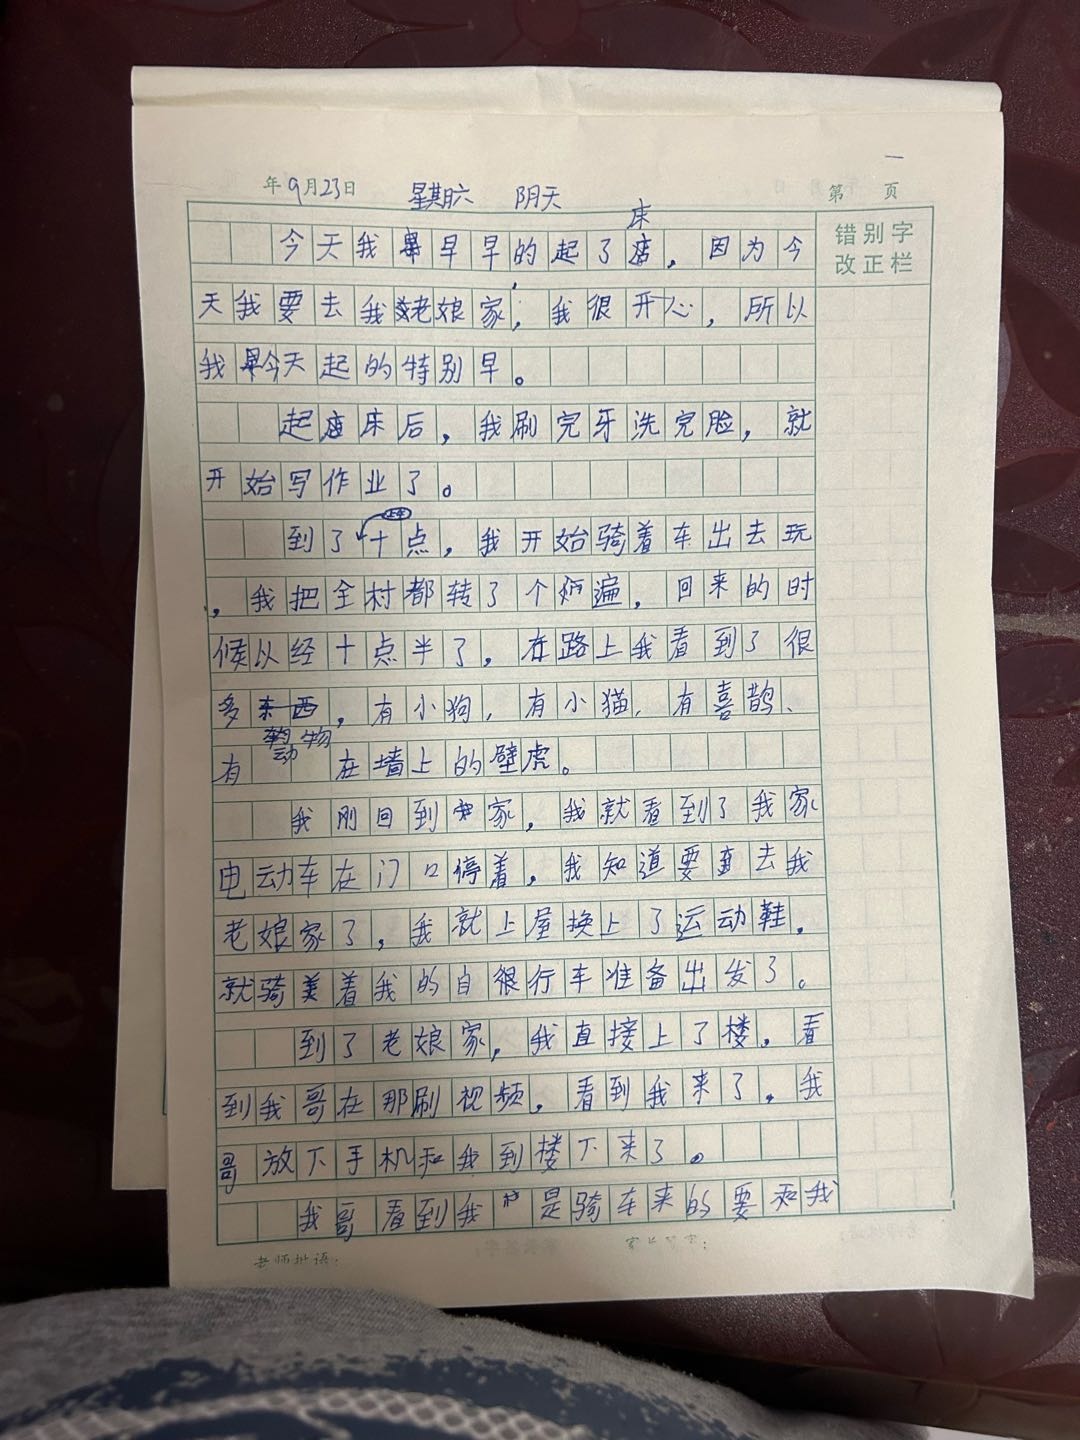 一
年9月23日 星期六 阴天 第 页
错别字
改正栏
床
今天我早早的起了,因为今
天我要去我姥娘家,我很开心,所以
我今天起的特别早。
起床后,我刷完牙洗完脸,就
开始写作业了。
到了十点,我开始骑着车出去玩
,我把全村都转了个遍,回来的时
候以经十点半了,在路上我看到了很
多东西,有小狗,有小猫,有喜鹊、
动物
有 在墙上的壁虎。
我刚回到家,我就看到了我家
电动车在门口停着,我知道要去我
老娘家了,我就上屋换上了运动鞋,
就骑着我的自很行车准备出发了。
到了老娘家,我直接上了楼,看
到我哥在那刷视频,看到我来了,我
哥放下手机和我到楼下来了。
我哥看到我是骑车来的要和我
老师批语: